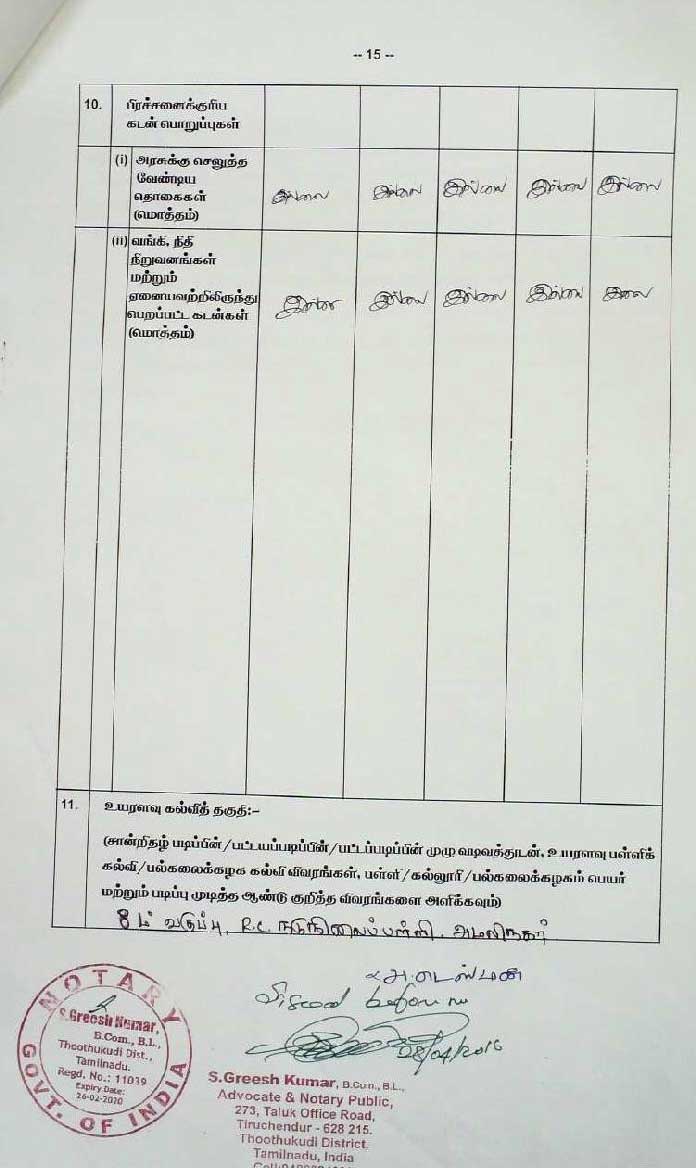 -- 15 --
10. பிரச்சனைக்குரிய
கடன் பொறுப்புகள்
(i) அரசுக்கு செலுத்த
வேண்டிய
தொகைகள்
(மொத்தம்)
இல்லை இல்லை இல்லை இல்லை இல்லை
(ii) வங்கி, நிதி
நிறுவனங்கள்
மற்றும்
ஏனையவற்றிலிருந்து
பெறப்பட்ட கடன்கள்
(மொத்தம்)
இல்லை இல்லை இல்லை இல்லை இல்லை
11. உயரளவு கல்வித் தகுதி:-
(சான்றிதழ் படிப்பின்/பட்டயப்படிப்பின்/பட்டப்படிப்பின் முழு வடிவத்துடன், உயரளவு பள்ளிக்
கல்வி/பல்கலைக்கழக கல்வி விவரங்கள், பள்ளி/கல்லூரி/பல்கலைக்கழகம் பெயர்
மற்றும் படிப்பு முடித்த ஆண்டு குறித்த விவரங்களை அளிக்கவும்)
8 ம் வகுப்பு, R.C. நடுநிலைப்பள்ளி, அமலிநகர்
before me
28/04/2016
NOTARY
GOVT. OF INDIA
S.Greesh Kumar,
B.Com., B.L.,
Thoothukudi Dist.,
Tamilnadu.
Regd. No.: 11039
Expiry Date:
26-02-2020
S.Greesh Kumar, B.Com., B.L.,
Advocate & Notary Public,
273, Taluk Office Road,
Tiruchendur - 628 215.
Thoothukudi District.
Tamilnadu, India